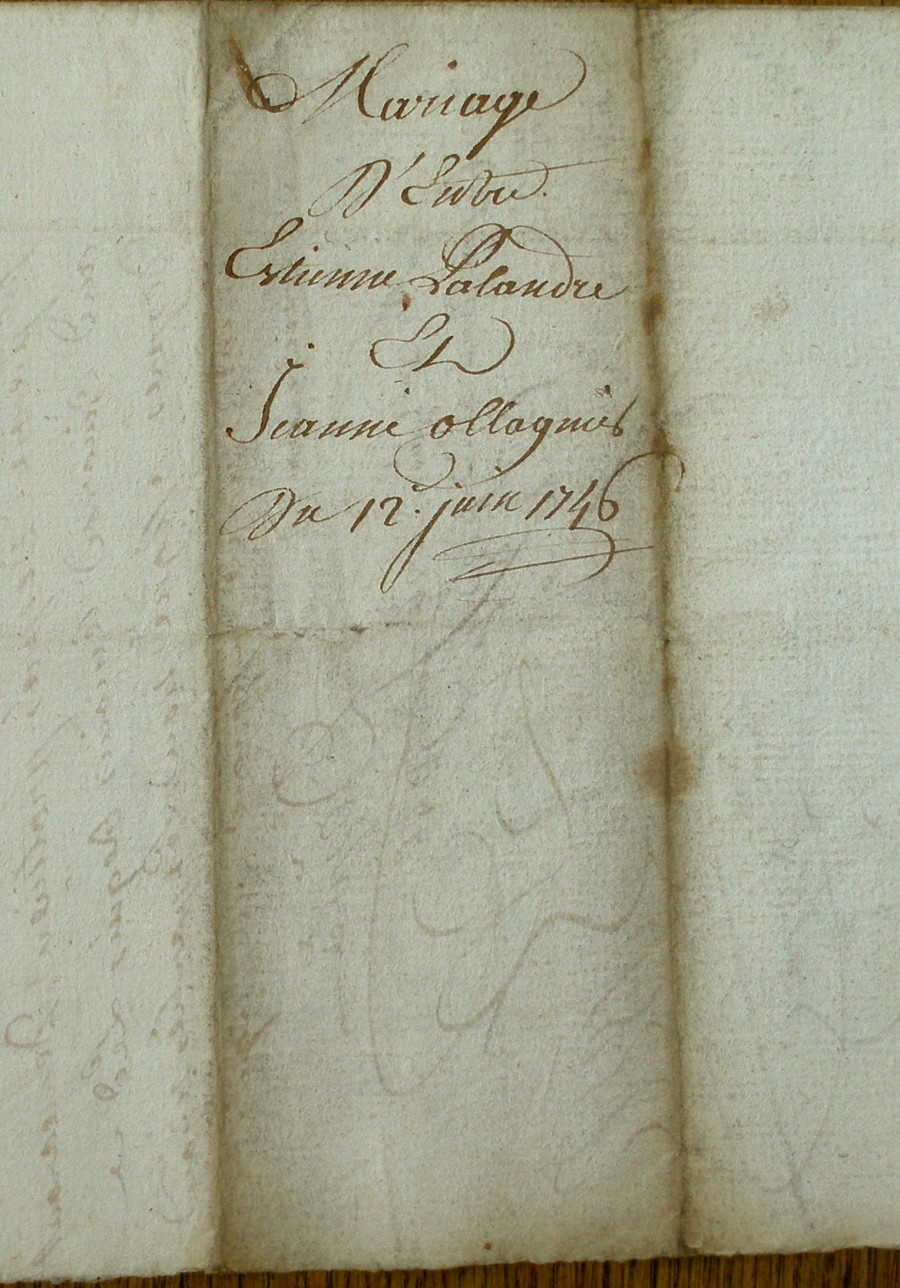 Mariage
D'Entre
Estienne Lalandre
Et
Jeanne ollagnier
Du 12.e juin 1746